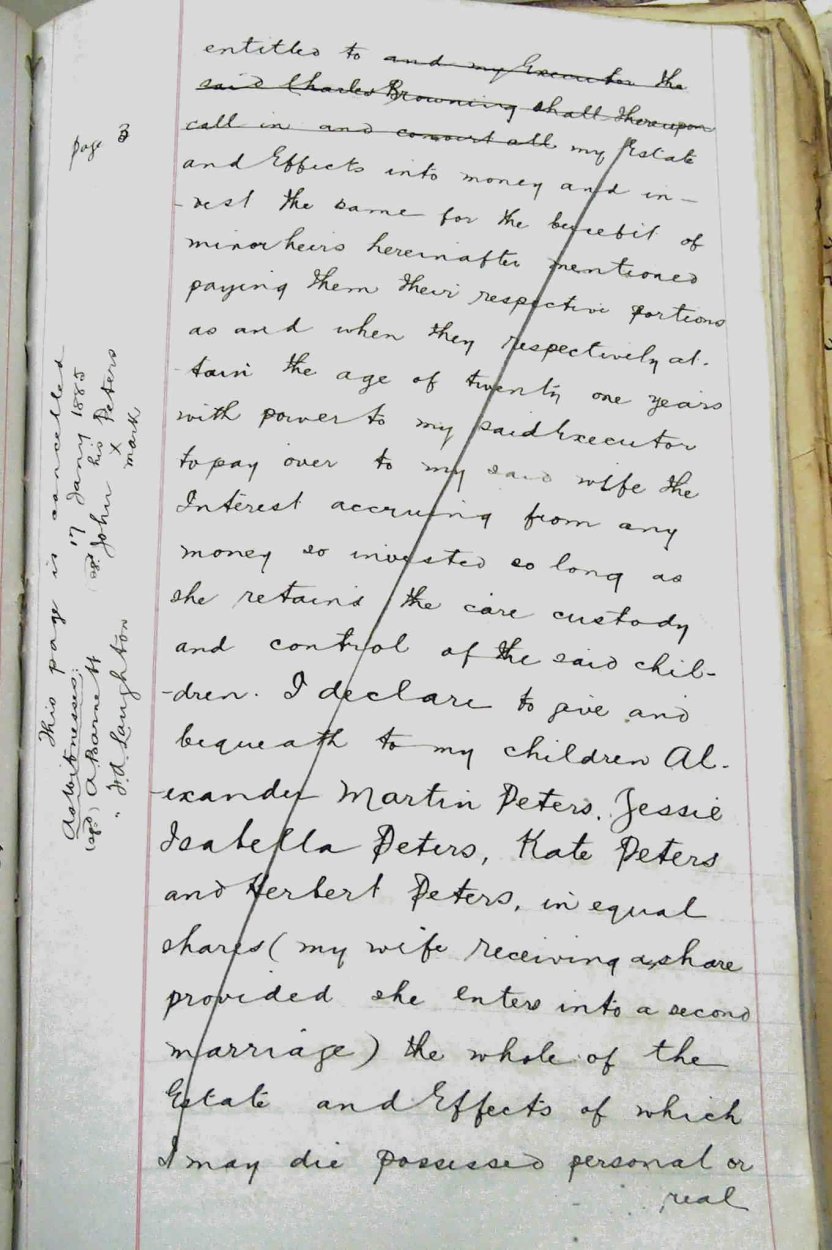 page 3
entitled to and my Executor the
said Charles Browning shall thereupon
call in and convert all my Estate
and Effects into money and in-
-vest the same for the benefit of
minor heirs hereinafter mentioned
paying them their respective portions
as and when they respectively at-
-tain the age of twenty one years
with power to my said Executor
to pay over to my said wife the
Interest accruing from any
money so invested so long as
she retains the care custody
and control of the said chil-
-dren. I declare to give and
bequeath to my children Al-
-exander Martin Peters, Jessie
Isabella Peters, Kate Peters
and Herbert Peters, in equal
shares (my wife receiving a share
provided she enters into a second
marriage) the whole of the
Estate and Effects of which
I may die possessed personal or
real
This page is cancelled
17 Jany 1885
his
(sgd) John X Peters
mark
As witnesses,
(sgd) A Barnett
" J.A. Laughton